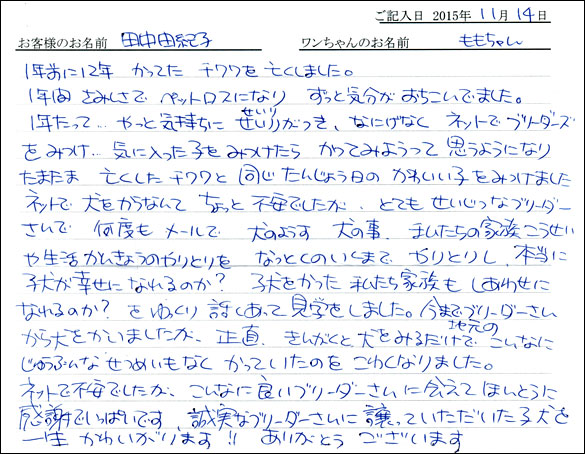 ご記入日 2015年 11月 14日
お客様のお名前 田中由紀子 ワンちゃんのお名前 ももちゃん
1年前に12年 かってた チワワを亡くしました。
1年間 さみしさで ペットロスになり ずっと気分が おちこいでました。
1年たって… やっと気持ちに せいりがつき、なにげなく ネットで ブリーダーズ
をみつけ… 気に入った子をみつけたら かってみようって 思うようになり
たまたま 亡くしたチワワと 同じ たんじょう日の かわいい子をみつけました
ネットで 犬をかうなんて ちょっと 不安でしたが、とても せいじつなブリーダー
さんで 何度も メールで 犬のようす 犬の事、私たちの家族こうせい
や生活かんきょうのやりとりを なっとくのいくまで やりとりし、本当に
子犬が幸せになれるのか? 子犬をかった 私たち家族も しあわせに
なれるのか? をゆっくり 話しあって 見学をしました。今までブリーダーさん
から犬をかいましたが、正直、きんがくと 犬をみるだけで 地元の こんなに
じゅうぶんな せつめいもなく かっていたのを こわくなりました。
ネットで不安でしたが、こんなに良いブリーダーさんに 会えて ほんとうに
感謝でいっぱいです、誠実なブリーダーさんに 譲っていただいた子犬を
一生 かわいがります!! ありがとう ございます